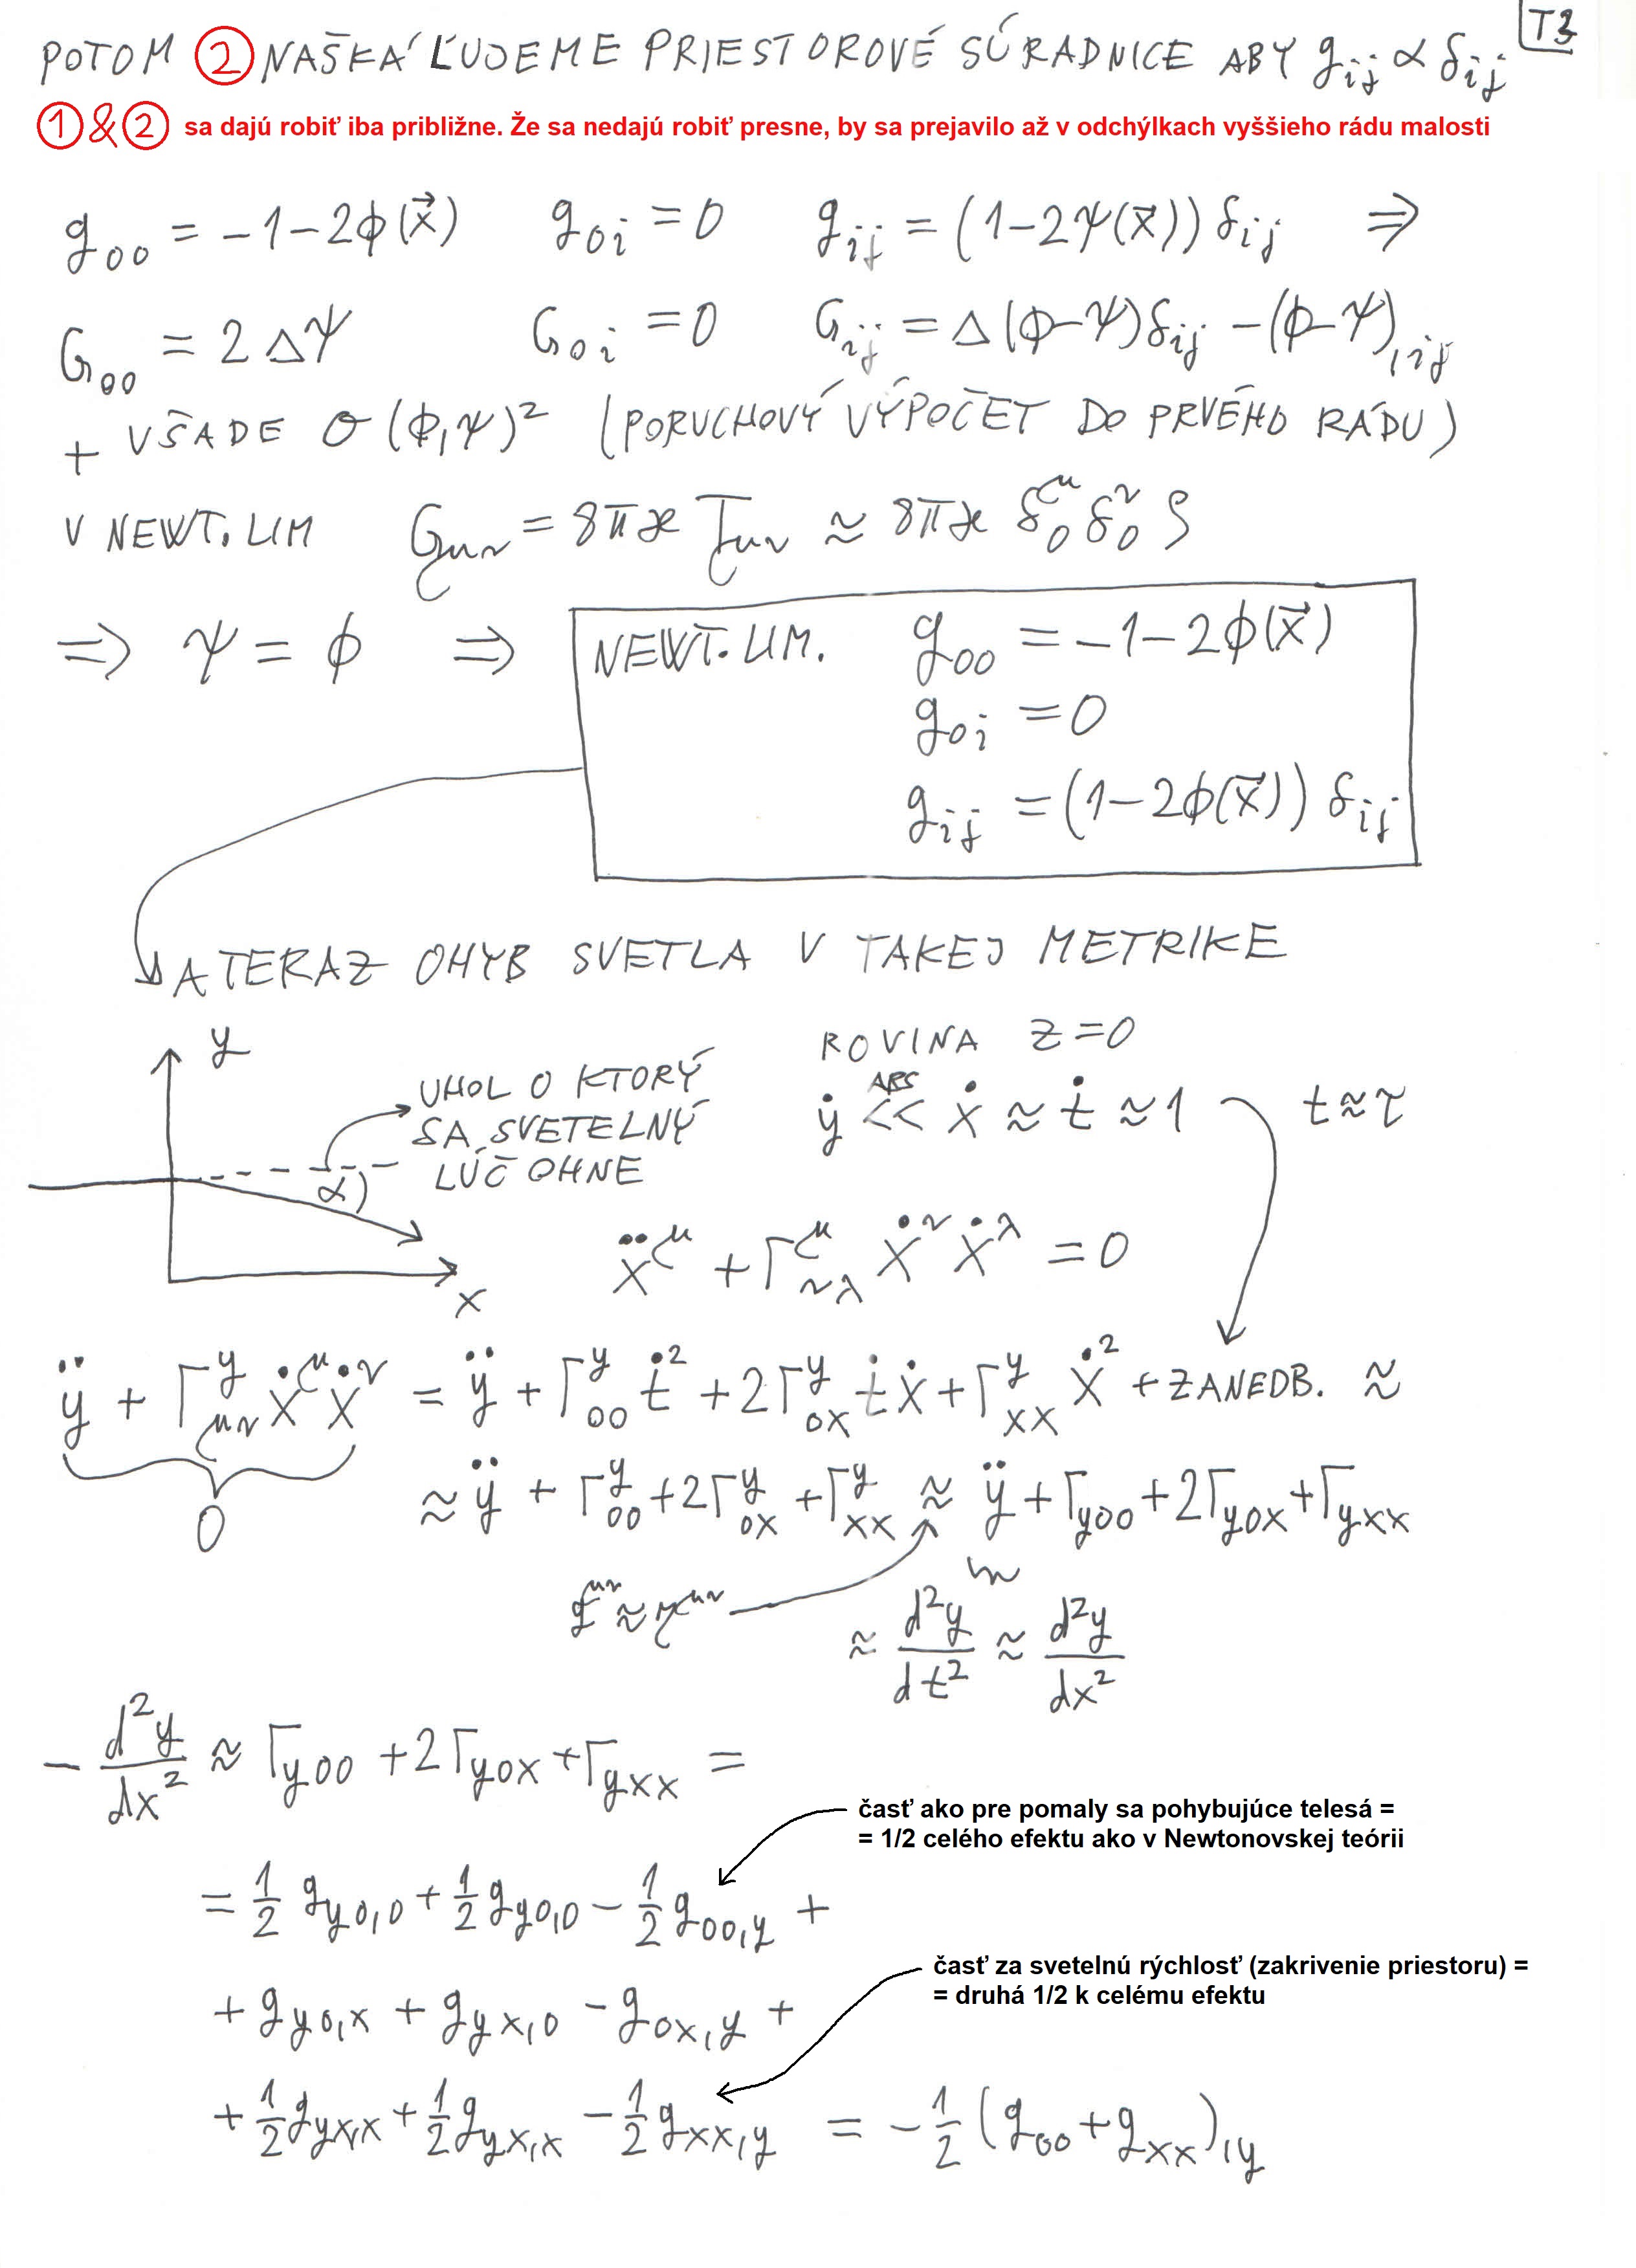 T3
POTOM ② NAŠKÁĽUJEME PRIESTOROVÉ SÚRADNICE ABY g_ij ∝ δ_ij
①&② sa dajú robiť iba približne. Že sa nedajú robiť presne, by sa prejavilo až v odchýlkach vyššieho rádu malosti
g_00 = -1-2ϕ(x⃗) g_0i = 0 g_ij = (1-2ψ(x⃗)) δ_ij ⇒
G_00 = 2Δψ G_0i = 0 G_ij = Δ(ϕ-ψ)δ_ij - (ϕ-ψ)_,ij
+ VŠADE O(ϕ,ψ)² (PORUCHOVÝ VÝPOČET DO PRVÉHO RÁDU)
V NEWT. LIM G_μν = 8πϰ T_μν ≈ 8πϰ δ^μ_0 δ^ν_0 ρ
⇒ ψ = ϕ ⇒ NEWT. LIM. g_00 = -1-2ϕ(x⃗)
g_0i = 0
g_ij = (1-2ϕ(x⃗)) δ_ij
A TERAZ OHYB SVETLA V TAKEJ METRIKE
y
UHOL O KTORÝ
SA SVETELNÝ
LÚČ OHNE
α
x
ROVINA z=0
ABS
ẏ << ẋ ≈ ṫ ≈ 1 t≈τ
ẍ^μ + Γ^μ_νλ ẋ^ν ẋ^λ = 0
ÿ + Γ^y_μν ẋ^μ ẋ^ν = ÿ + Γ^y_00 ṫ² + 2Γ^y_0x ṫẋ + Γ^y_xx ẋ² + ZANEDB. ≈
0
≈ ÿ + Γ^y_00 + 2Γ^y_0x + Γ^y_xx ≈ ÿ + Γ_y00 + 2Γ_y0x + Γ_yxx
g^μν ≈ η^μν
≈ d²y/dt² ≈ d²y/dx²
- d²y/dx² ≈ Γ_y00 + 2Γ_y0x + Γ_yxx =
časť ako pre pomaly sa pohybujúce telesá =
= 1/2 celého efektu ako v Newtonovskej teórii
= 1/2 g_y0,0 + 1/2 g_y0,0 - 1/2 g_00,y +
časť za svetelnú rýchlosť (zakrivenie priestoru) =
= druhá 1/2 k celému efektu
+ g_y0,x + g_yx,0 - g_0x,y +
+ 1/2 g_yx,x + 1/2 g_yx,x - 1/2 g_xx,y = - 1/2 (g_00 + g_xx)_,y